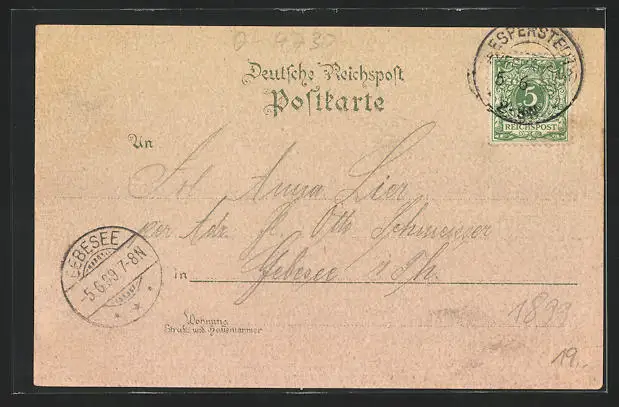 0-4730
ESPERSTEDT
5 6
5
REICHSPOST
Deutsche Reichspost
Postkarte
An
Frl Anna Lier
per Adr. H. Otto
GEBESEE
-5.6.99.7-8N
in Gebesee i/Th.
Wohnung
Straße und Hausnummer
1899
19,-